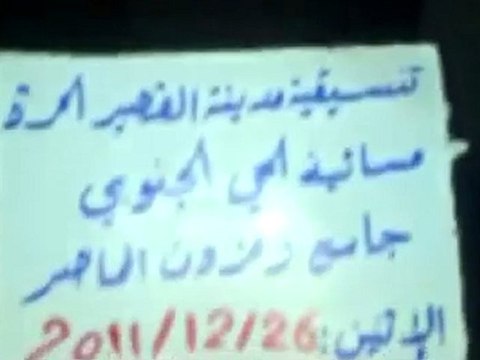 تنسيقية مدينة القصير الحرة
مسائية الحي الجنوبي
جامع زمزون الحاصر
الإثنين: 2011/12/26